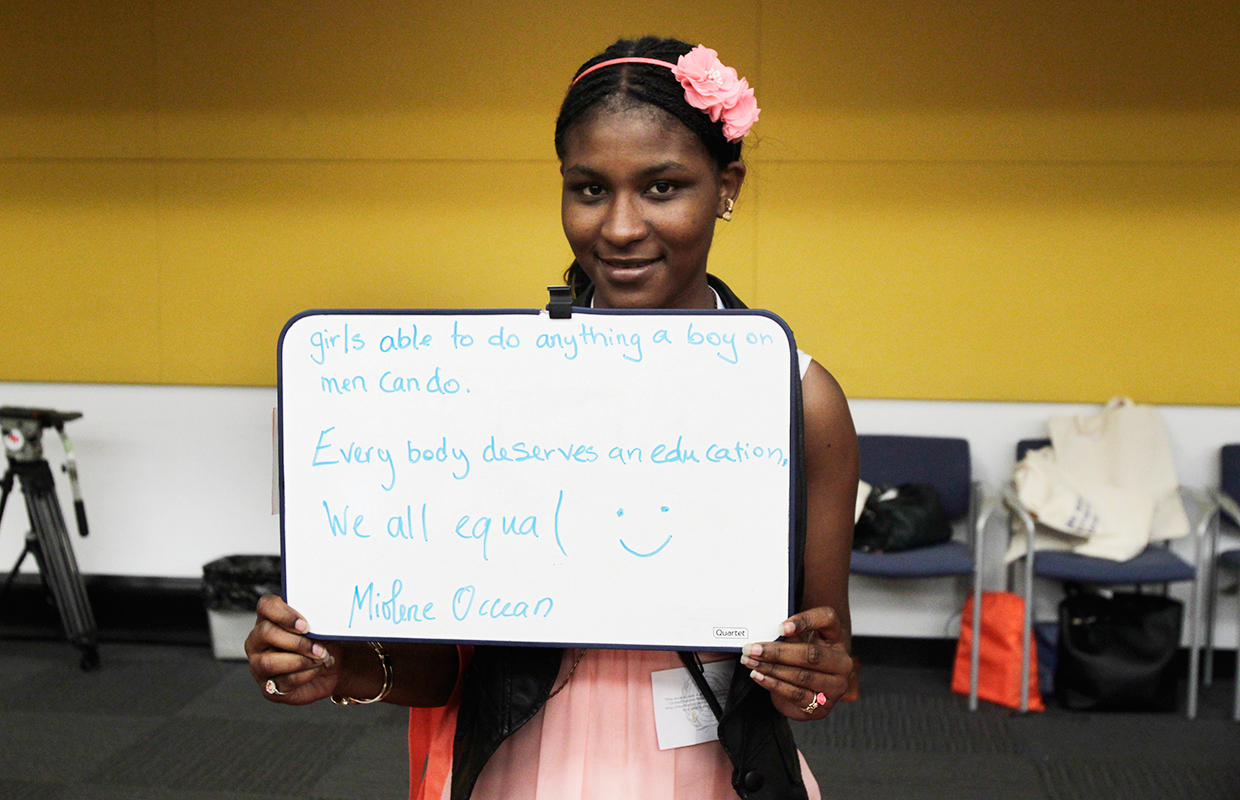 girls able to do anything a boy or
men can do.
Every body deserves an education,
We all equal
Miolene Occean
Quartet